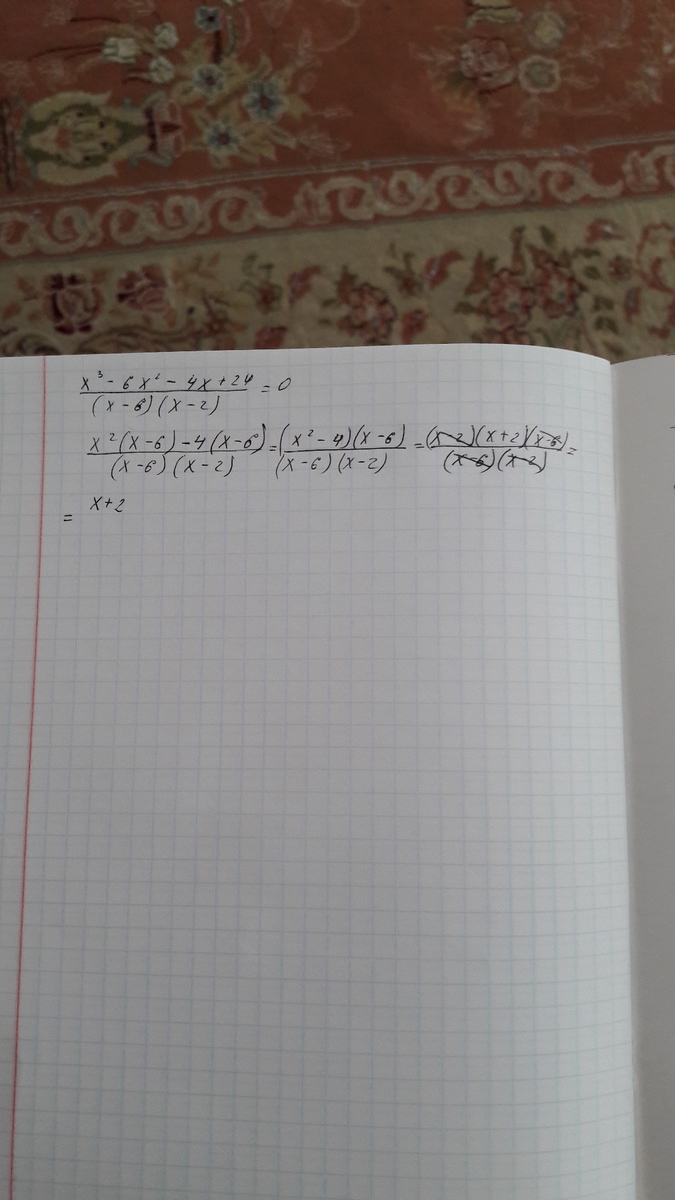 x³ - 6x² - 4x + 24 = 0
(x - 6)(x - 2)
x²(x - 6) - 4(x - 6) = (x² - 4)(x - 6) = (x - 2)(x + 2)(x - 6) =
(x - 6)(x - 2) (x - 6)(x - 2) (x - 6)(x - 2)
= x + 2